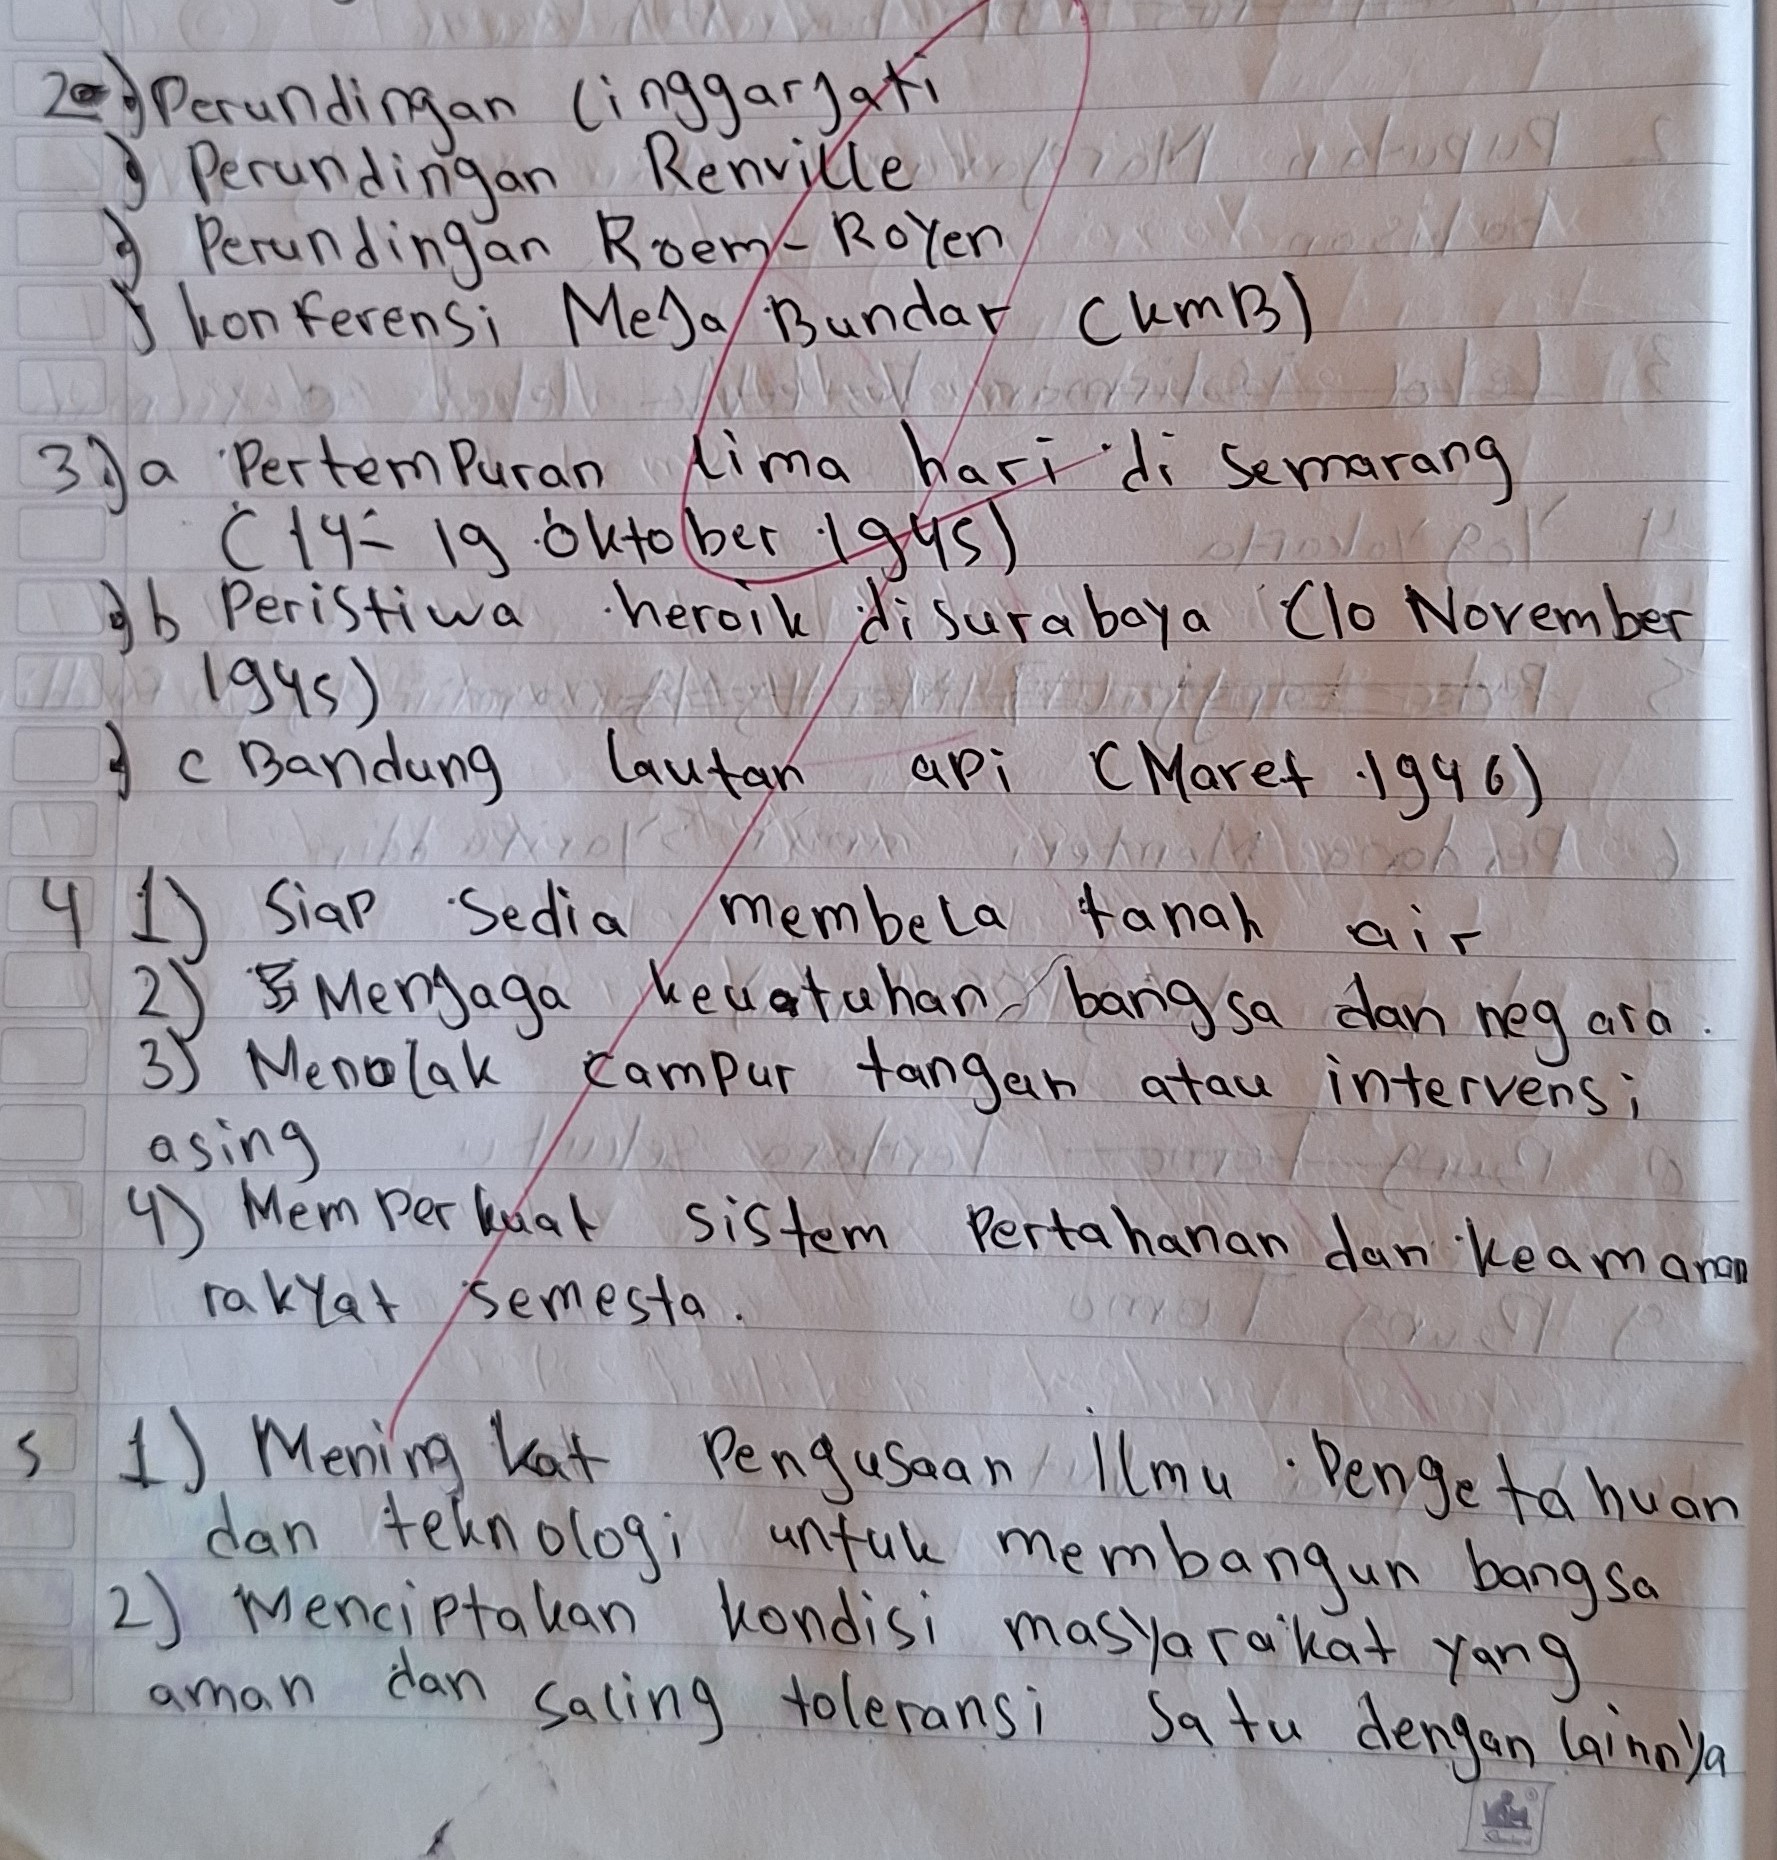 2 Perundingan Linggarjati
Perundingan Renville
Perundingan Roem - Royen
Konferensi Meja Bundar (KMB)
3) a Pertempuran lima hari di Semarang
(14 - 19 Oktober 1945)
b Peristiwa heroik disurabaya (10 November
1945)
c Bandung lautan api (Maret 1946)
4 1) Siap Sedia membela tanah air
2) Menjaga keuatuhan bangsa dan negara.
3) Menolak campur tangan atau intervensi
asing
4) Memperkuat sistem Pertahanan dan keamanan
rakyat semesta.
5 1) Meningkat Pengusaan Ilmu Pengetahuan
dan teknologi untuk membangun bangsa
2) Menciptakan kondisi masyarakat yang
aman dan saling toleransi satu dengan lainnya